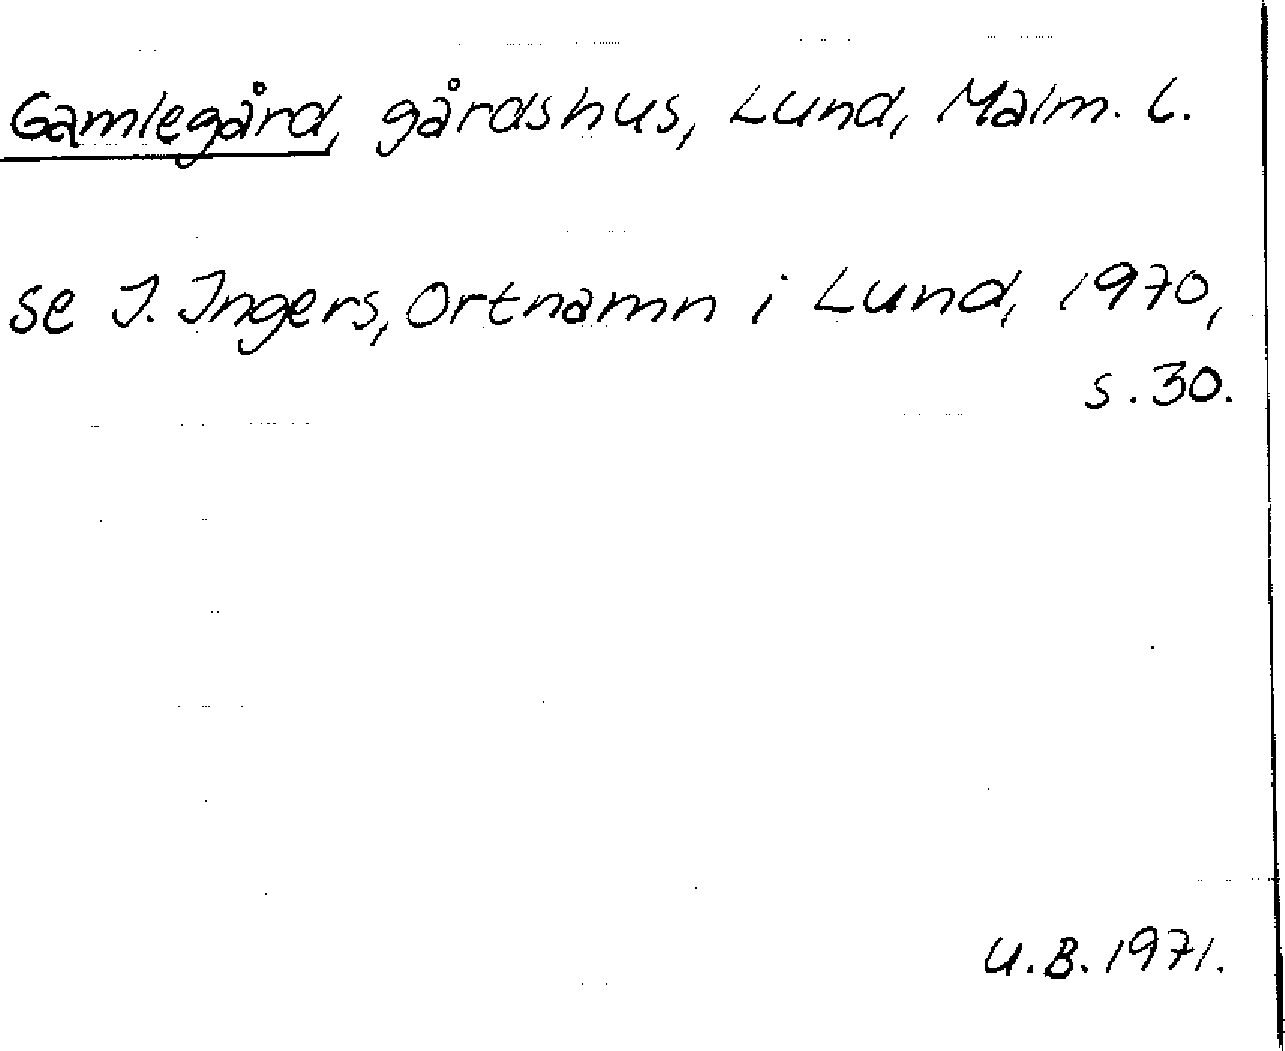 Gamlegård, gårdshus, Lund, Malm. L.
se I. Ingers, Ortnamn i Lund, 1970,
s. 30.
U.B. 1971.